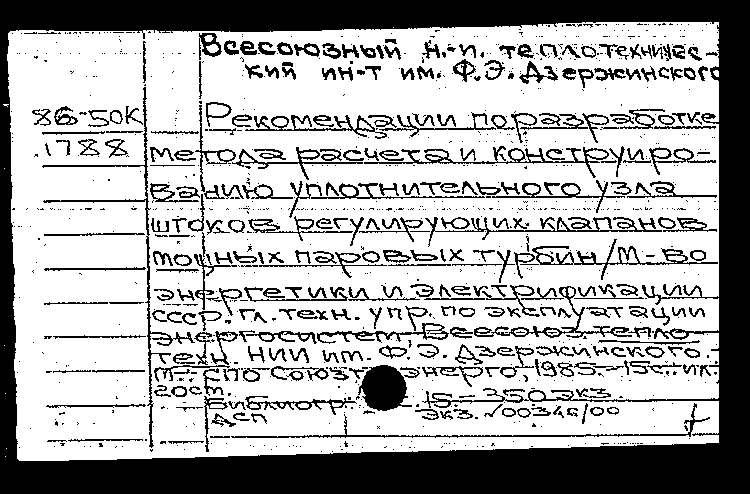 Всесоюзный н.-и. теплотехничес-
кий ин-т им. Ф.Э. Дзержинского
86-50К
1788
Рекомендации по разработке
метода расчета и конструиро-
ванию уплотнительного узла
штоков регулирующих клапанов
мощных паровых турбин / М-во
энергетики и электрификации
СССР. Гл. техн. упр. по эксплуатации
энергосистем, Всесоюз. тепло-
техн. НИИ им. Ф. Э. Дзержинского. -
М.: СПО Союзт энерго, 1985. - 15 с.: ил;
20 см.
Библиогр. 15. - 350 экз.
ДСП экз. √00346/00